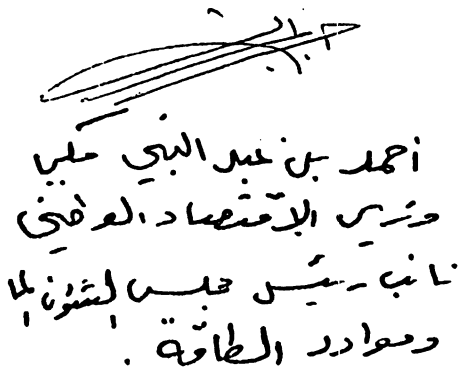 أحمد بن عبد النبي مكي
وزير الاقتصاد الوطني
نائب رئيس مجلس الشئون الما
وموارد الطاقة .